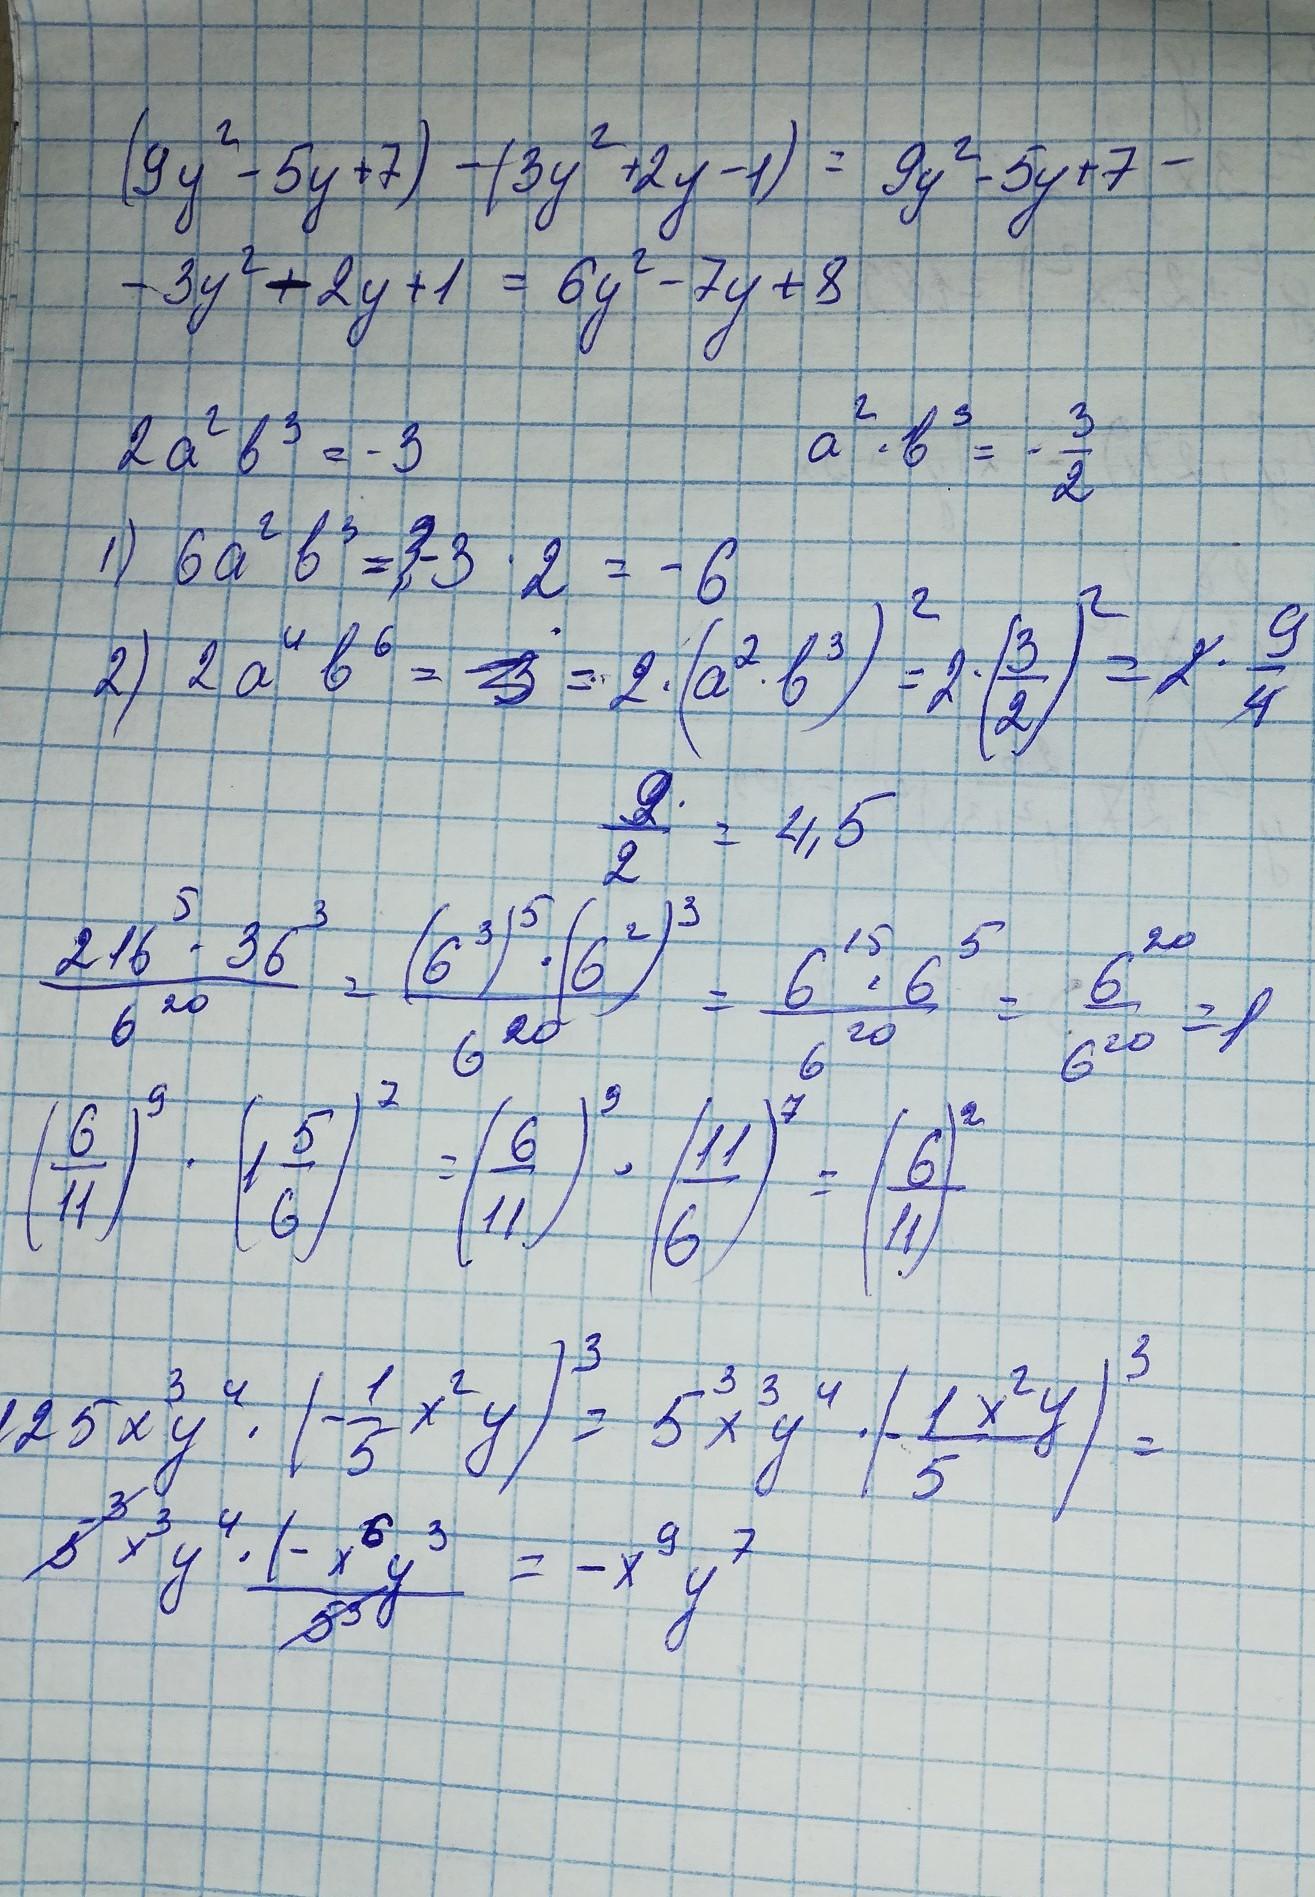 (9y² - 5y + 7) - (3y² + 2y - 1) = 9y² - 5y + 7 -
- 3y² - 2y + 1 = 6y² - 7y + 8
2a² b³ = - 3     a² · b³ = - 3/2
1) 6a² b³ = - 3 · 2 = - 6
2) 2a⁴ b⁶ = = 2 · (a² · b³)² = 2 · (3/2)² = 2 · 9/4
9/2 = 4,5
216⁵ · 36³ / 6²⁰ = (6³)⁵ · (6²)³ / 6²⁰ = 6¹⁵ · 6⁵ / 6²⁰ = 6²⁰ / 6²⁰ = 1
(6/11)⁹ · (1 5/6)⁷ = (6/11)⁹ · (11/6)⁷ = (6/11)²
125x³y⁴ · (- 1/5 x² y)³ = 5³x³y⁴ · (- 1x²y / 5)³ =
5³x³y⁴ · (- x⁶y³ / 5³ = - x⁹ y⁷